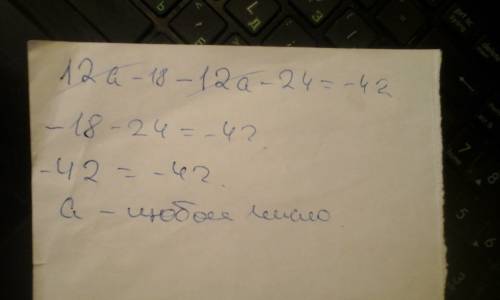 12a - 18 - 12a - 24 = -42
-18 - 24 = -42
-42 = -42.
a - любое число